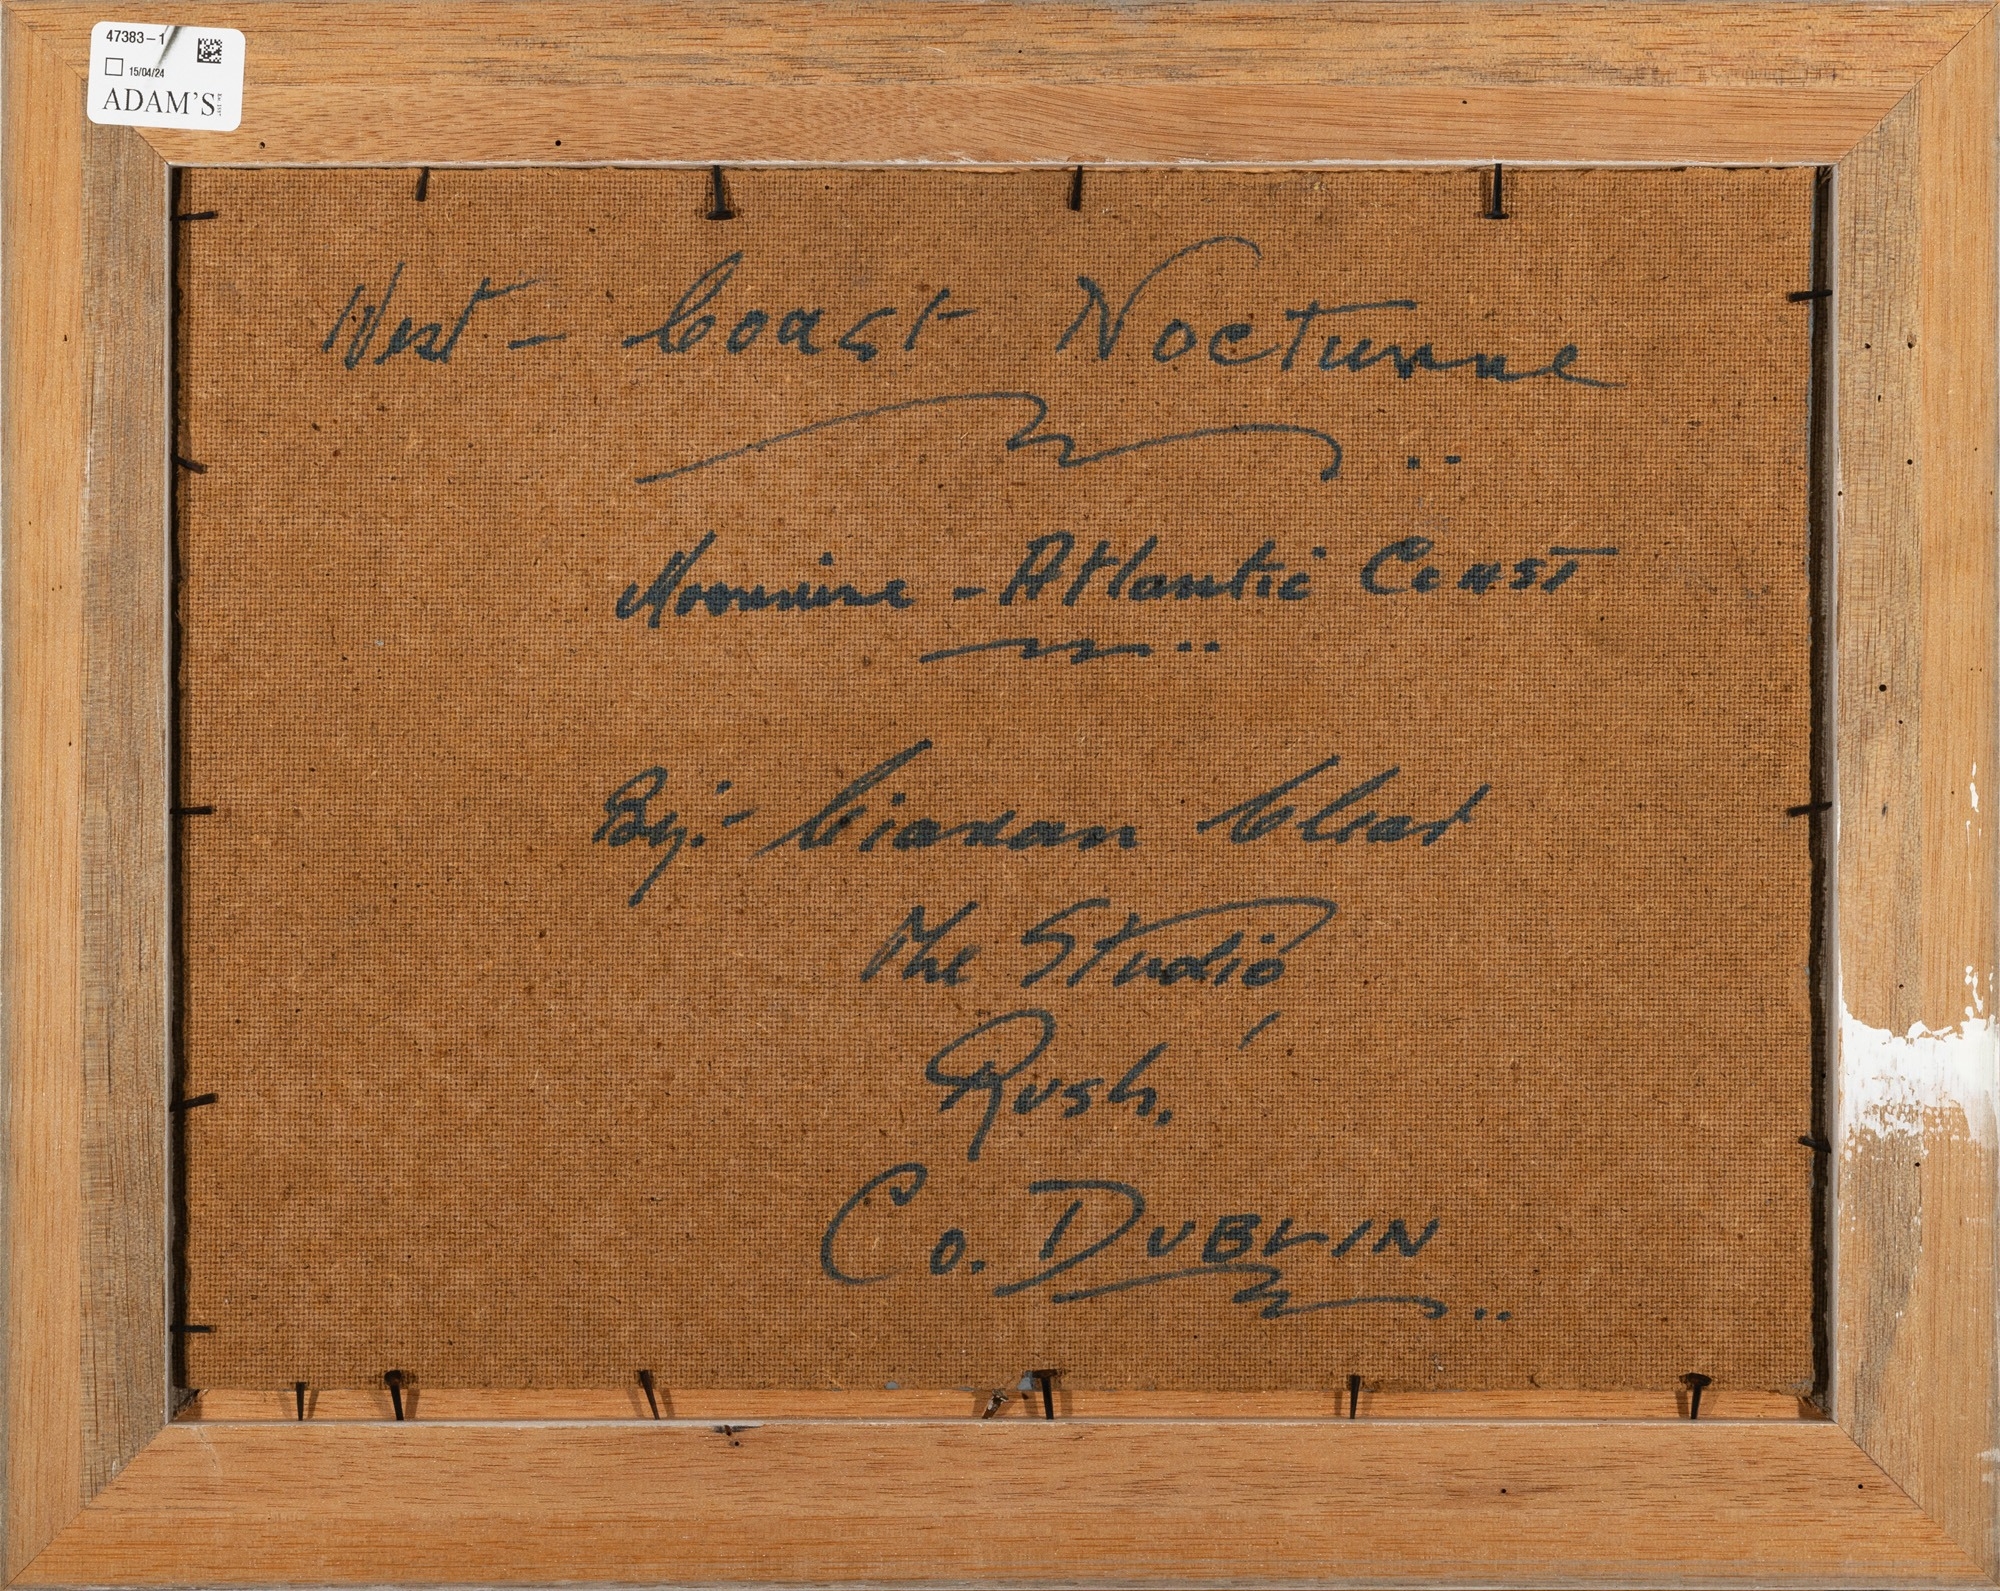 47383-1
15/04/24
ADAM'S
West - Coast Nocturne
- Atlantic Coast
By:- Ciaran Clear
The Studio
Rush.
Co. DUBLIN